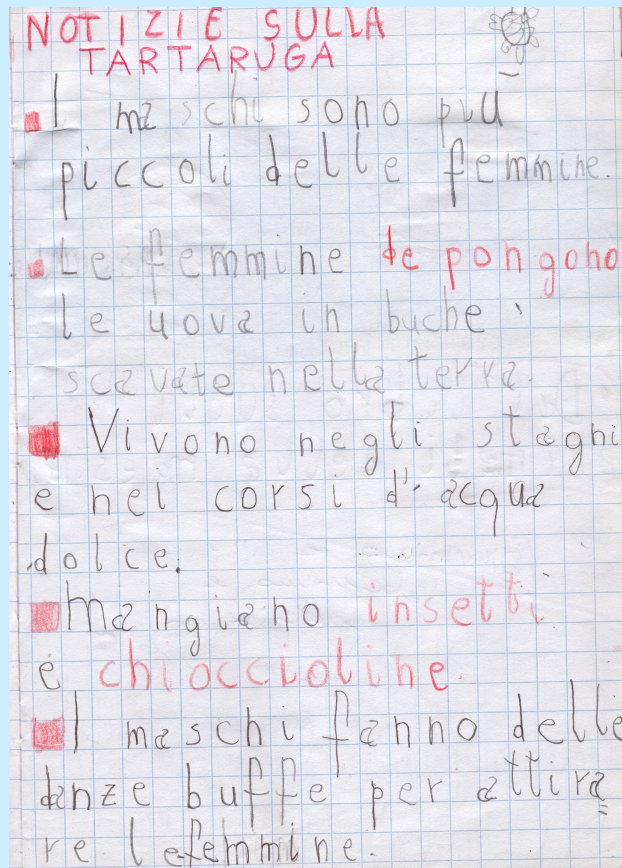 NOTIZIE SULLA
TARTARUGA
I maschi sono più
piccoli delle femmine.
Le femmine depongono
le uova in buche
scavate nella terra.
Vivono negli stagni
e nei corsi d'acqua
dolce.
Mangiano insetti
e chioccioline.
I maschi fanno delle
danze buffe per attira
re le femmine.